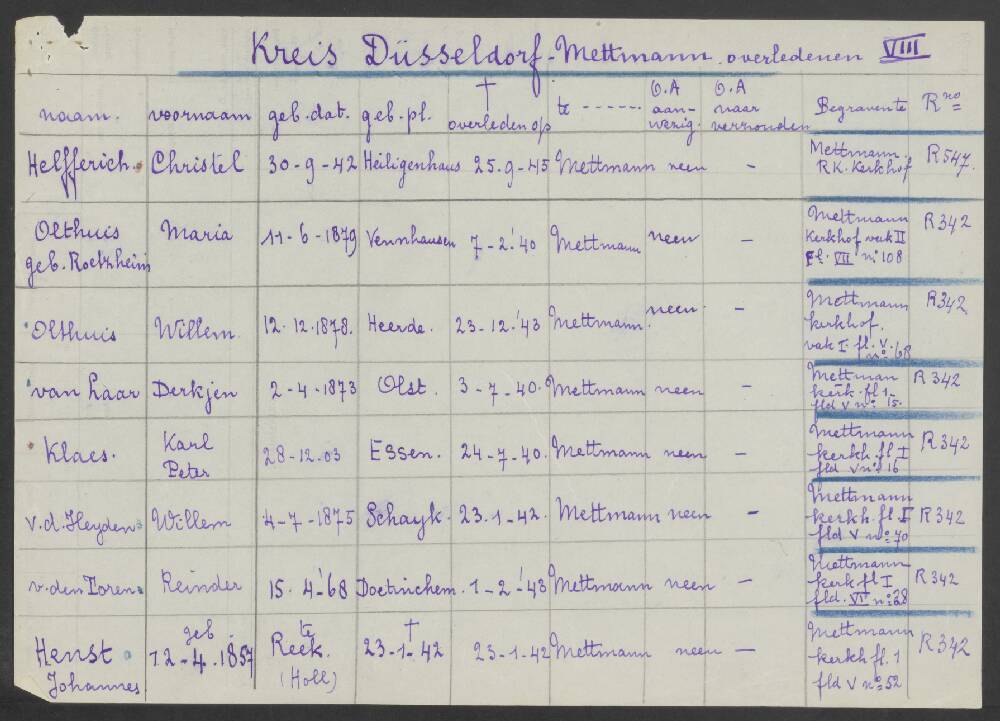 Kreis Düsseldorf-Mettmann overledenen VIII
naam. voornaam geb.dat. geb.pl. † overleden op te ------ O.A aan-wezig. O.A naar verzonden Begravente R no
Helfferich. Christel 30-9-42 Heiligenhaus 25.9-45 Mettmann neen - Mettmann R.K. Kerkhof R547.
Olthuis Maria 11-6-1879 Vennhausen 7-2-'40 Mettmann neen - Mettmann R342
geb. Roelzheim Kerkhof vak II
Fl. VII no 108
Olthuis Willem. 12.12.1878. Heerde. 23-12.'43 Mettmann. neen. - Mettmann R342
kerkhof.
vak I fl. V.
no 68
van Laar Derkjen 2-4-1873 Olst. 3-7-40. Mettmann neen - Mettman R342
kerk. fl 1-
fld V no 15.
Klaes. Karl Peter 28-12.03 Essen. 24-7-40. Mettmann neen - Mettmann R342
kerkh. fl I
fld V no 16
v.d. Heyden Willem 4-7-1875 Schayk. 23.1-42. Mettmann neen - Mettmann R342
kerkh. fl I
fld V no 70
v.den Toren. Reinder 15.4-'68 Doetinchem. 1-2-'43 Mettmann neen - Mettmann R342
kerk fl I
fld. VI no 28
Henst geb. 12-4.1857 te Reek. † 23-1-42 23-1-42 Mettmann neen - Mettmann R342
Johannes (Holl) kerkh fl. 1
fld V no 52